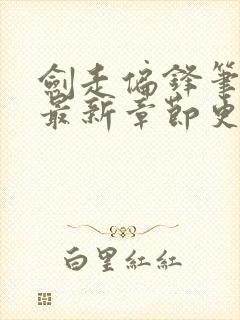 劍走偏鋒筆
最新章節史
白里紅紅